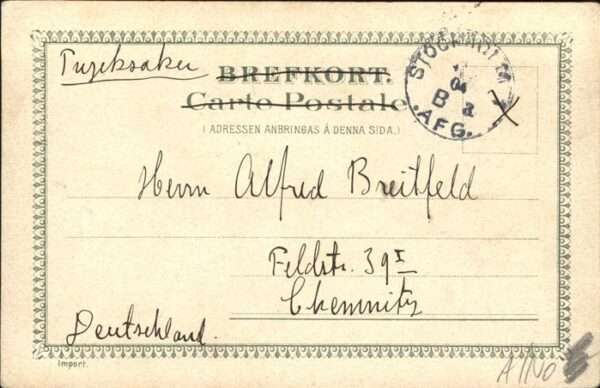 Trycksaker
BREFKORT.
Carte Postale
( ADRESSEN ANBRINGAS Å DENNA SIDA. )
STOCKHOLM
04
B a
.AFG.
Herrn Alfred Breitfeld
Feldstr. 39 I
Chemnitz
Deutschland.
Import.